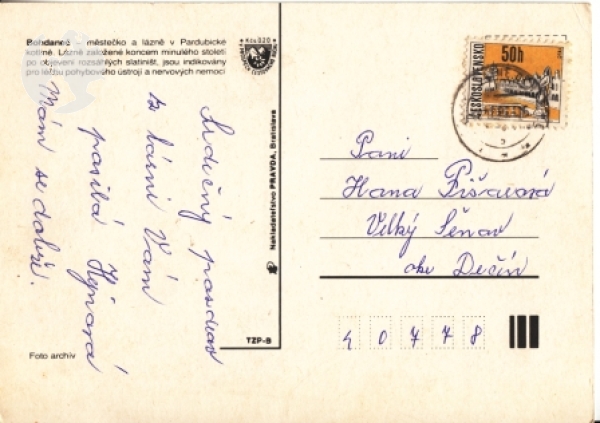 Bohdaneč – městečko a lázně v Pardubické
kotlině. Lázně založené koncem minulého století
po objevení rozsáhlých slatinišť, jsou indikovány
pro léčbu pohybového ústrojí a nervových nemocí
Srdečný pozdrav
z lázní Vám
posílá
Mám se dobře.
Foto archiv
Nakladateľstvo PRAVDA, Bratislava
TZP-B
Kčs 0,20
50h
ČESKOSLOVENSKO
Paní
Hana
Velký Šenov
okr Děčín
40778